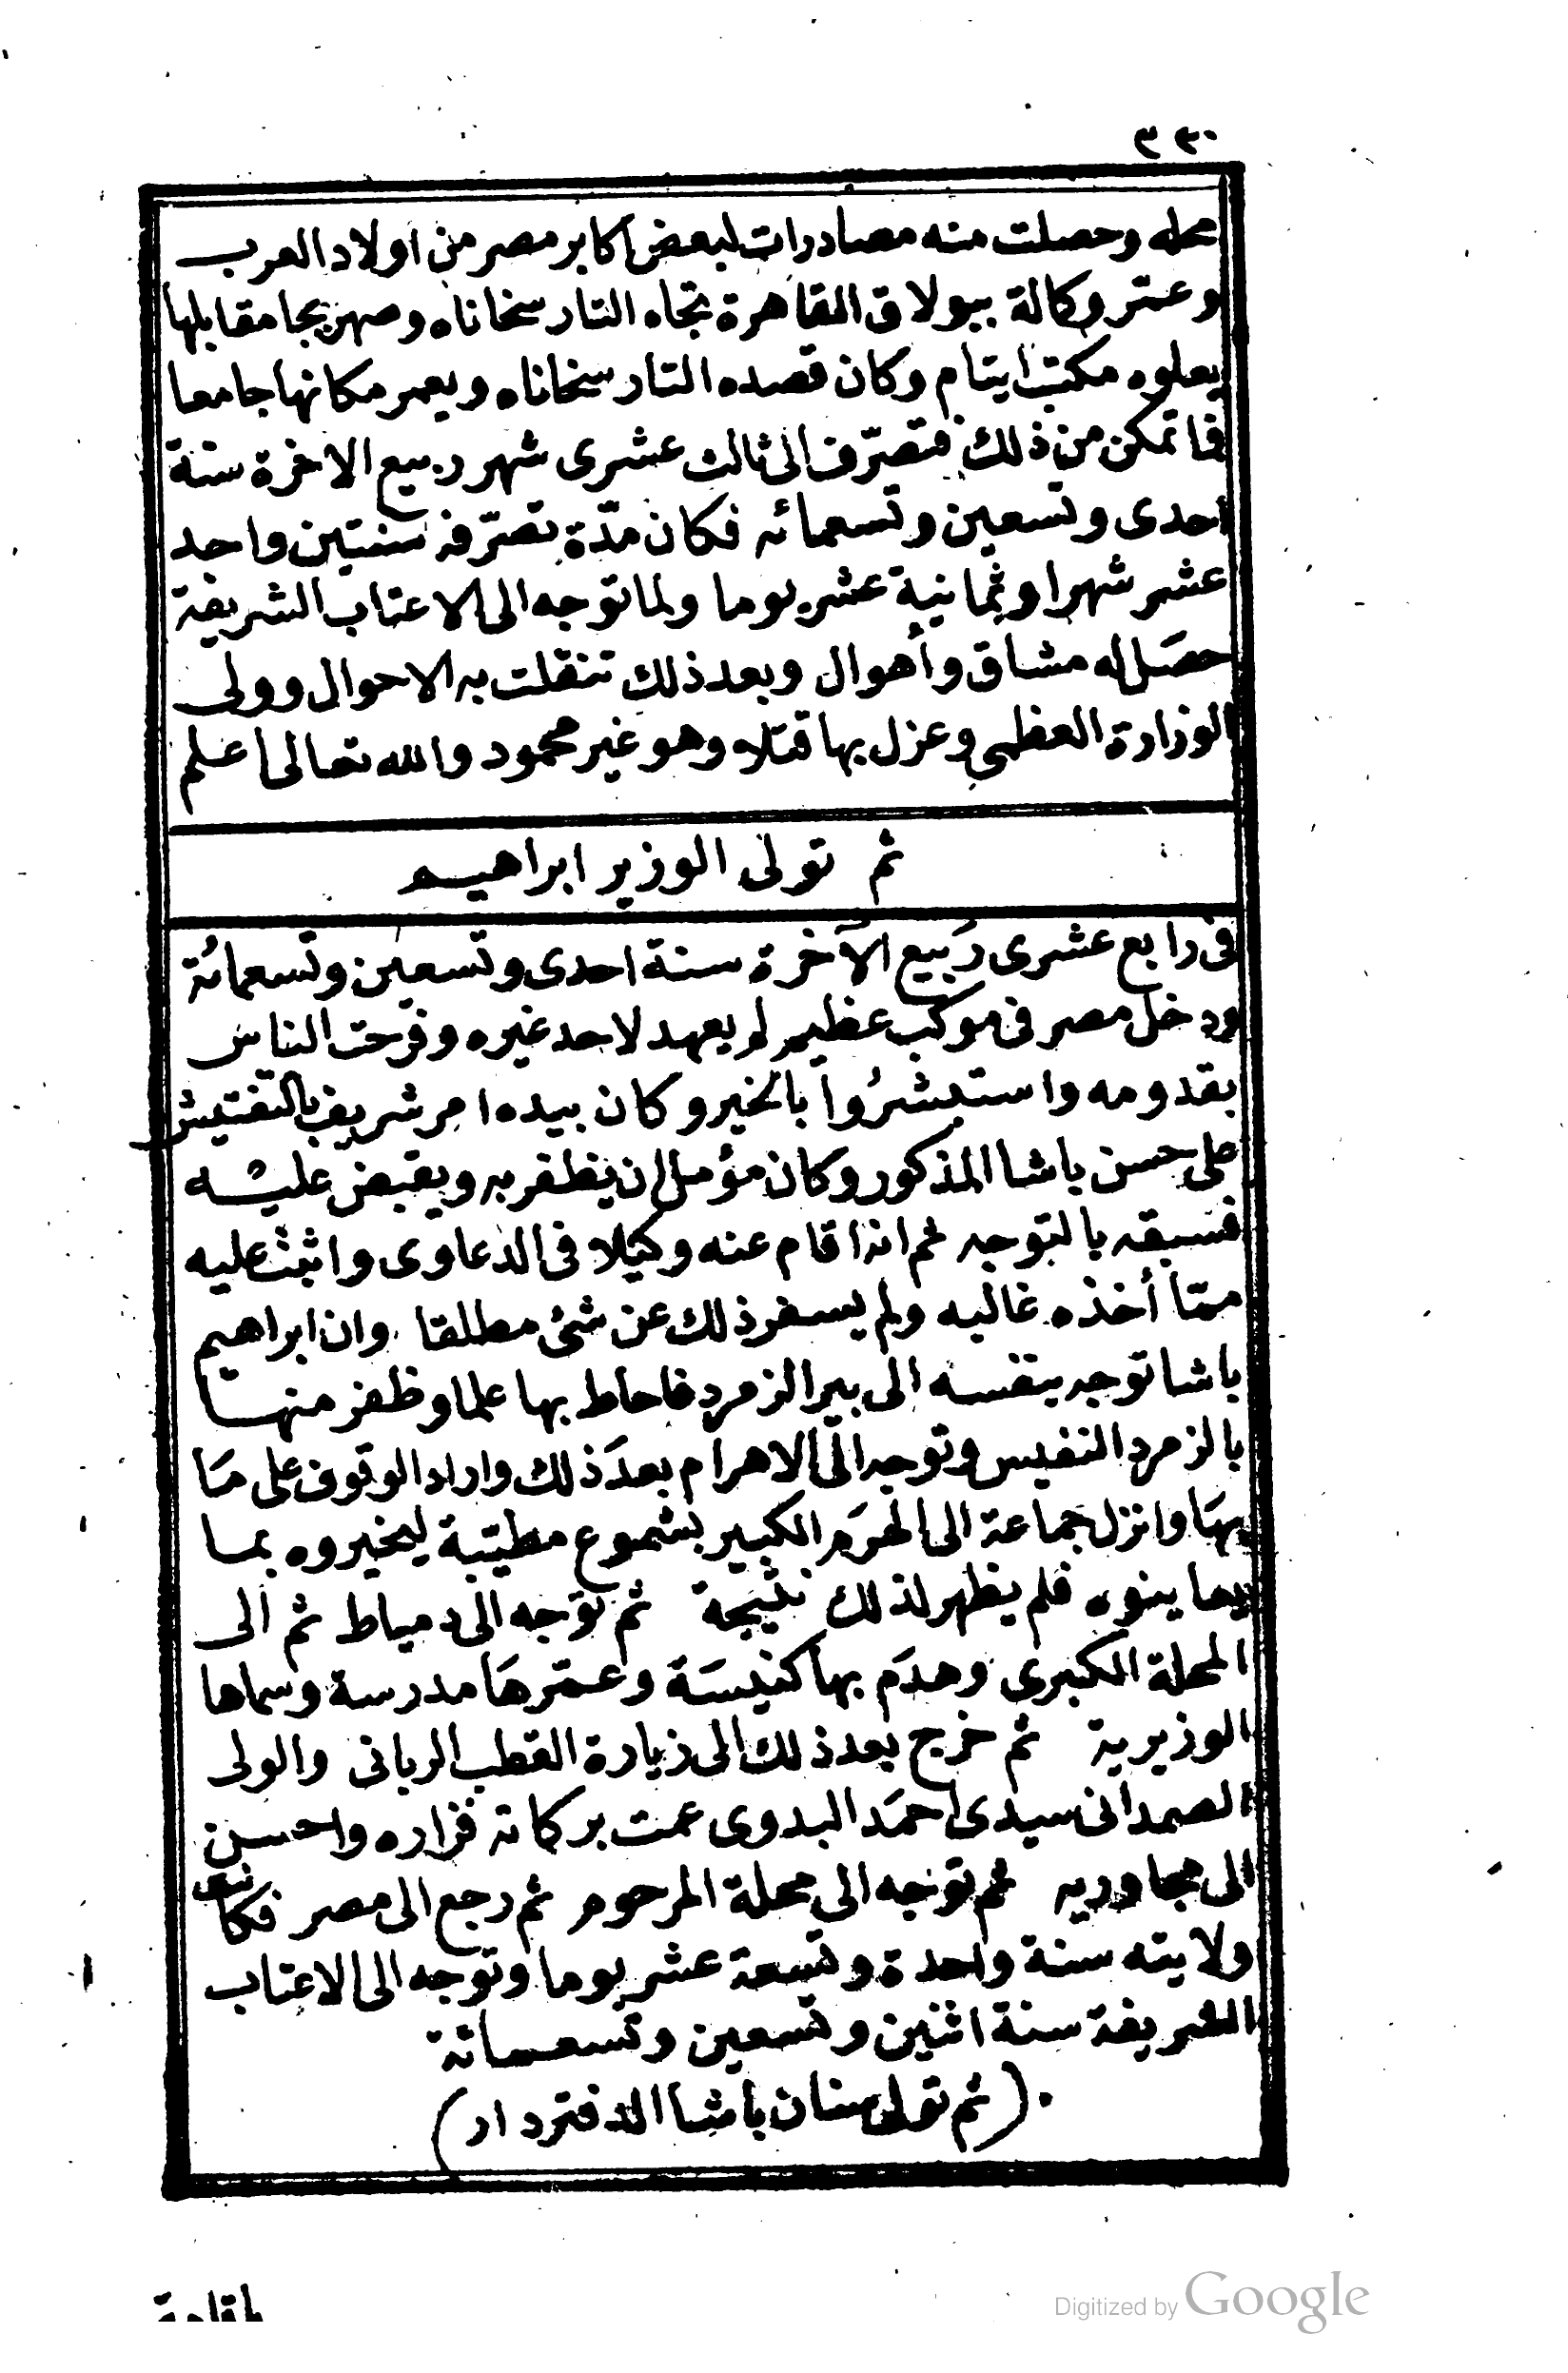 ٣٣٠
محله وحصلت منه مصادرات لبعض اكابر مصر من اولاد العرب
وعمّر وكالة ببولاق القاهرة تجاه التارسخاناه وصهريجا مقابلها
يعلوه مكتب ايتام وكان قصده التارسخاناه ويعمر مكانها جامعا
فما تمكن من ذلك فتصرّف الى ثالث عشرى شهر ربيع الاخرة سنة
احدى وتسعين وتسعمائه فكان مدّة تصرّفه سنتين واحد
عشر شهرا وثمانية عشر يوما ولما توجه الى الاعتاب الشريفة
حصَل له مشاق وأهوال وبعد ذلك تنقلت به الاحوال وولى
الوزارة العظمى وعزل بها قتلا وهو غير محمود والله تعالى اعلم
ثم تولى الوزير ابراهيم
فى رابع عشرى رَبيع الآخرة سنة احدى وتسعين وتسعمائة
ودخل مصر فى موكب عظيم لم يعهد لاحد غيره وفرحت الناس
بقدومه واستبشرُوا بالخير وكان بيده امر شريف بالتفتيش
على حسن باشا المذكور وكان مؤمل ان يظفر به ويقبض عليه
فسبقه بالتوجه ثم انه اقام عنه وكيلا فى الدعاوى واثبت عليه
ممّا أخذه غالبه ولم يسفر ذلك عن شئ مطلقا وان ابراهيم
باشا توجه بنفسه الى بير الزمرد فاحاط بها علما وظفر منها
بالزمرد النفيس وتوجه الى الاهرام بعدَ ذلك واراد الوقوف على مَا
بهَا وانزل جماعة الى الهرَم الكبير بشموع مطيّبة ليخبروه بما
يعاينوه فلم يظهر لذلك نتيجة ثم توجه الى دمياط ثم الى
المحلة الكبرى وهدَم بها كنيسَة وعمّرهَا مدرسة وسماها
الوزيرية ثم خرج بعد ذلك الى زيارة القطب الربانى والولى
الصمدانى سيدى احمَد البدوى عمت بركاته فزاره واحسن
الى مجاوريه ثم توجه الى محلة المرحوم ثم رجع الى مصر فكانت
ولايته سنة واحدة وتسعة عشر يوما وتوجه الى الاعتاب
الشريفة سنة اثنين وتسعين وتسعمائة
(ثم تولى سنان باشا الدفتردار)
Digitized by Google